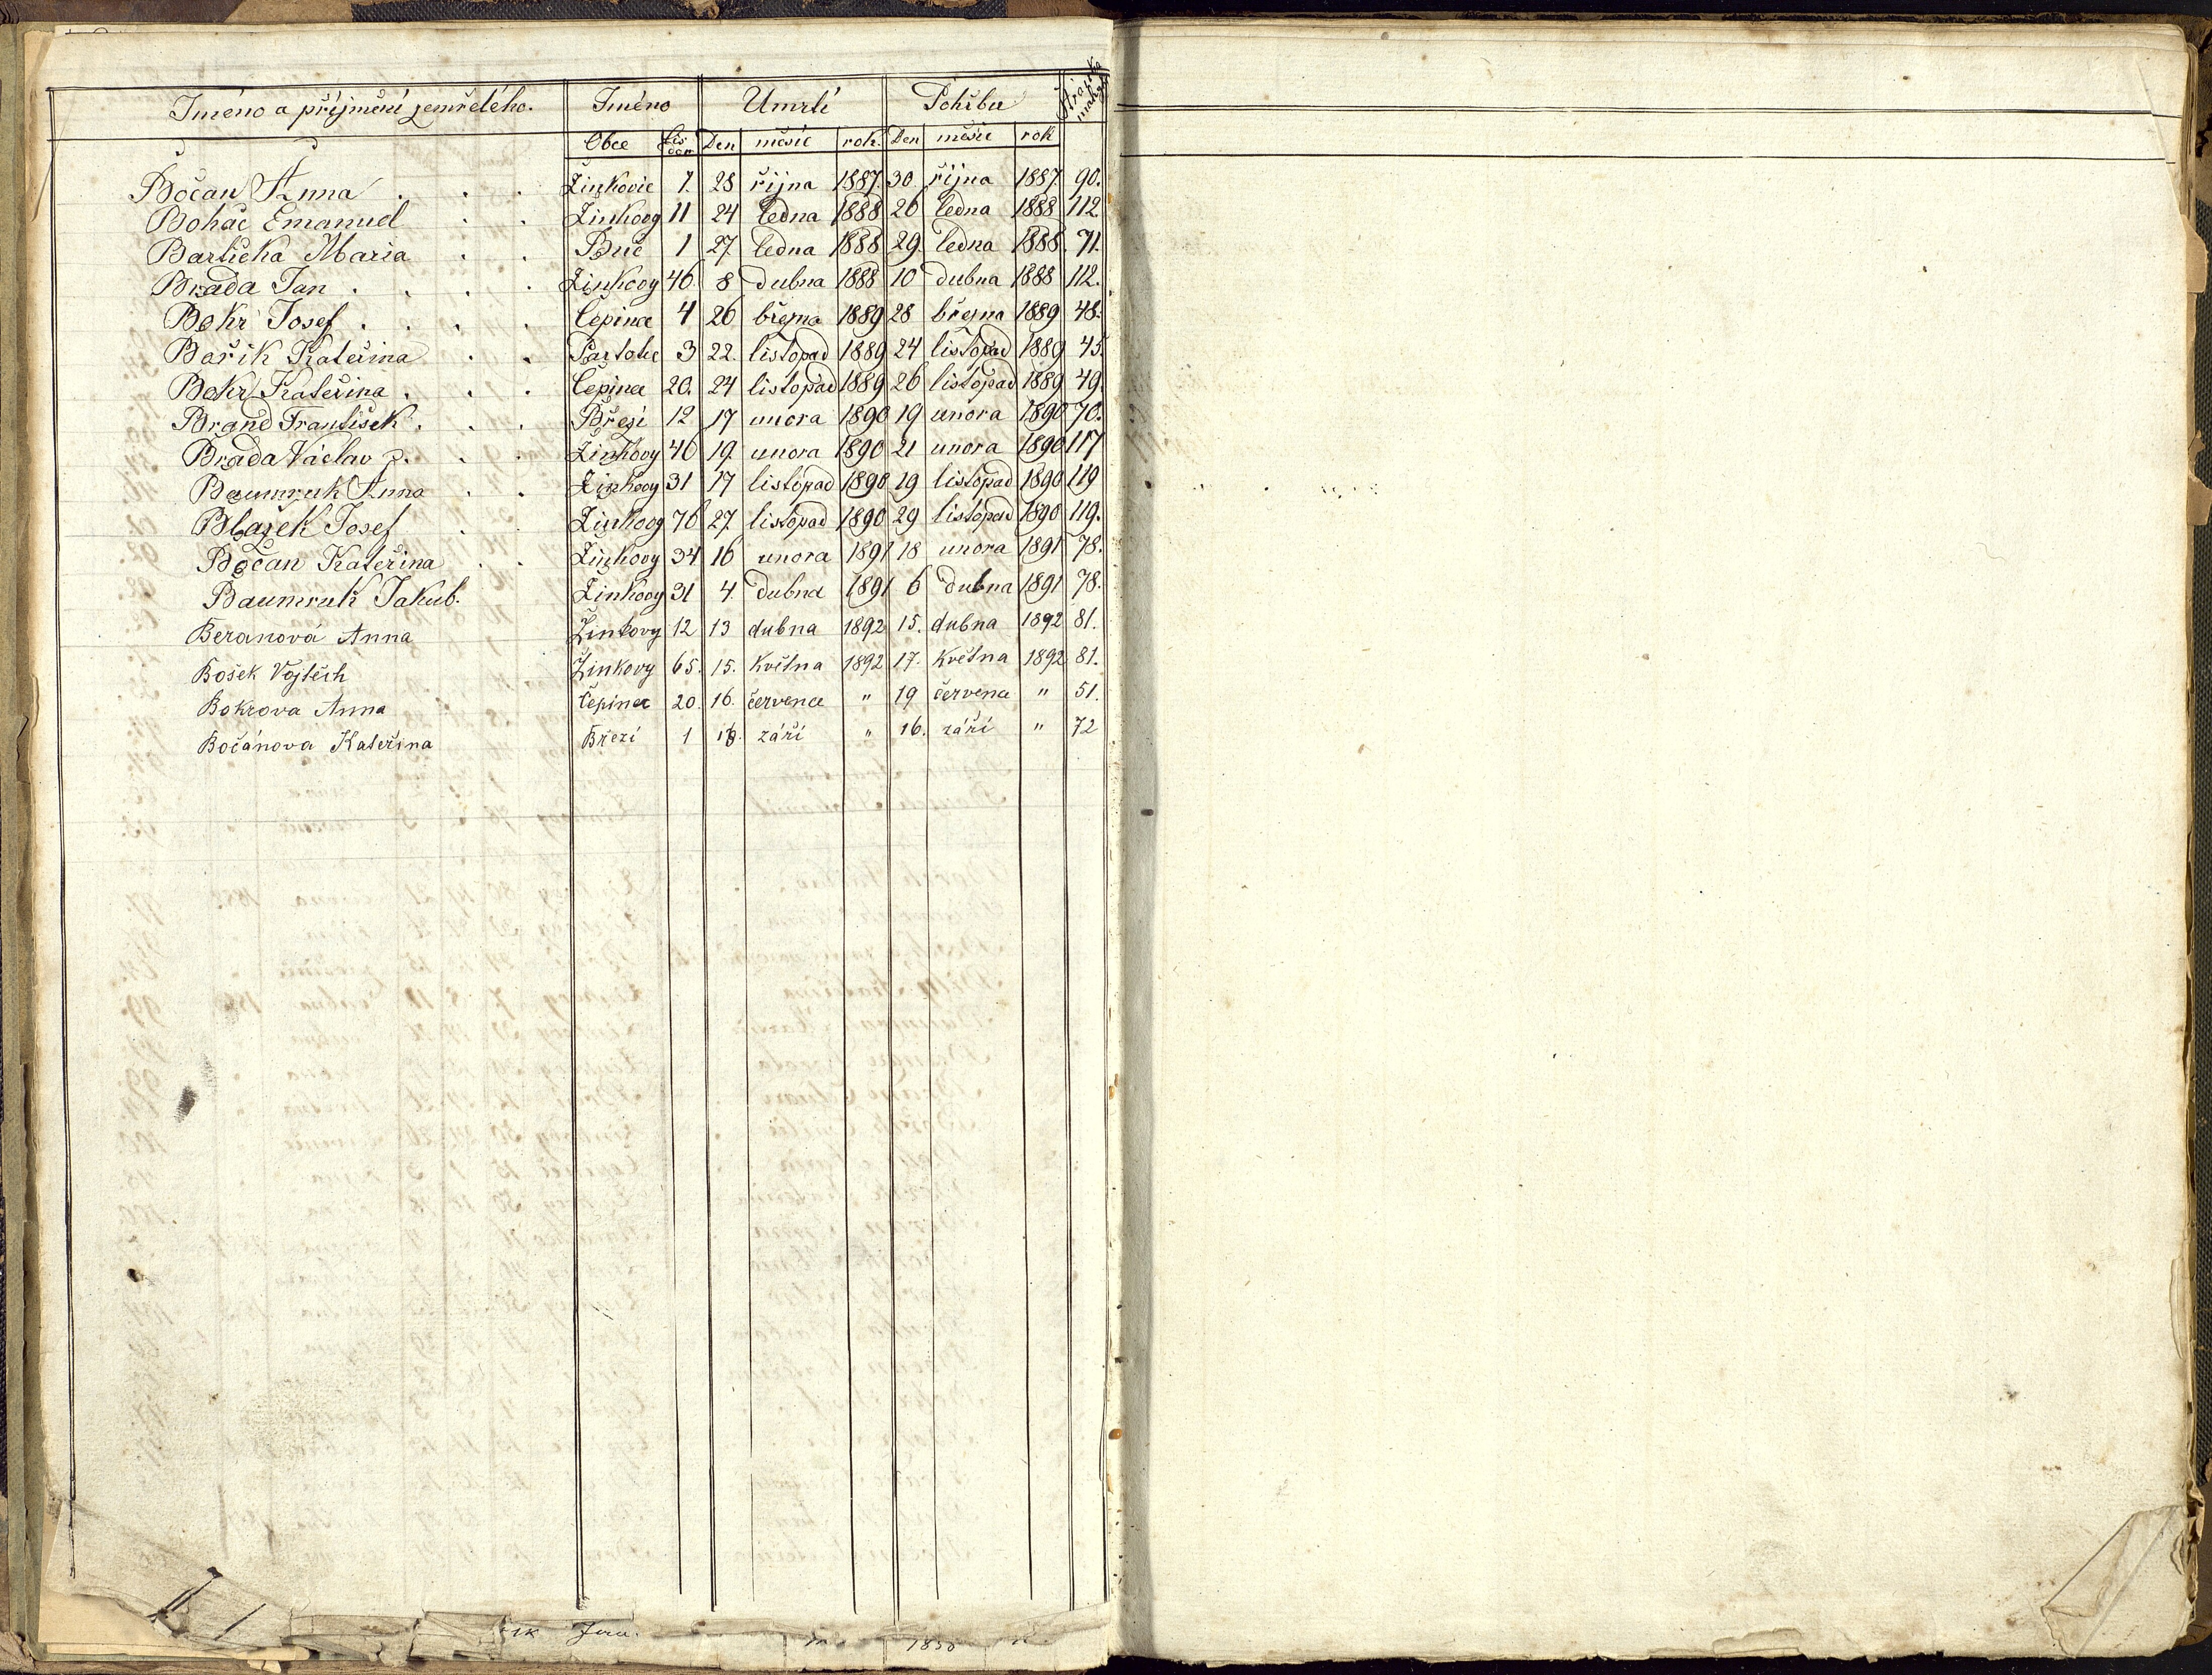 Jméno a příjmění zemřelého. Jméno Umrtí Pohřbu Stránka matryky
Obce Čís dom Den měsíc rok. Den měsíc rok
Bočan Anna . . . Žinkovic 7. 28 října 1887. 30 října 1887 90.
Boháč Emanuel . . Žinkovy 11 24 ledna 1888 26 ledna 1888 112
Bartička Maria . . 1 27 ledna 1888 29 ledna 1888. 71.
Brada Jan . . . . Žinkovy 46 8 dubna 1888 10 dubna 1888 112.
Bokr Josef . . . . Čepinec 4 26 března 1889 28 března 1889 48.
Bařik Kateřina . . Partotic 3 22. listopad 1889 24 listopad 1889 45.
Bokr Kateřina . . . Čepinec 20. 24 listopad 1889 26 listopad 1889 49.
Brand František . . . Březi 12 17 unora 1890 19 unora 1890 70.
Brada Václav . . . Žinkovy 46 19. unora 1890 21 unora 1890 117
Baumruk Anna . . Žinkovy 31 17 listopad 1890 19 listopad 1890 119
Blažek Josef . . Žinkovy 76 27 listopad 1890 29 listopad 1890 119.
Bočan Kateřina . . Žinkovy 34 16 unora 1891 18 unora 1891 78.
Baumruk Jakub. Žinkovy 31 4. dubna 1891 6 dubna 1891 78.
Beranová Anna Žinkovy 12 13 dubna 1892 15. dubna 1892 81.
Bošek Vojtěch Žinkovy 65. 15. května 1892 17. května 1892 81.
Bokrova Anna Čepinec 20. 16. července " 19 července " 51.
Bočánova Kateřina Březí 1 září " 16. září " 72